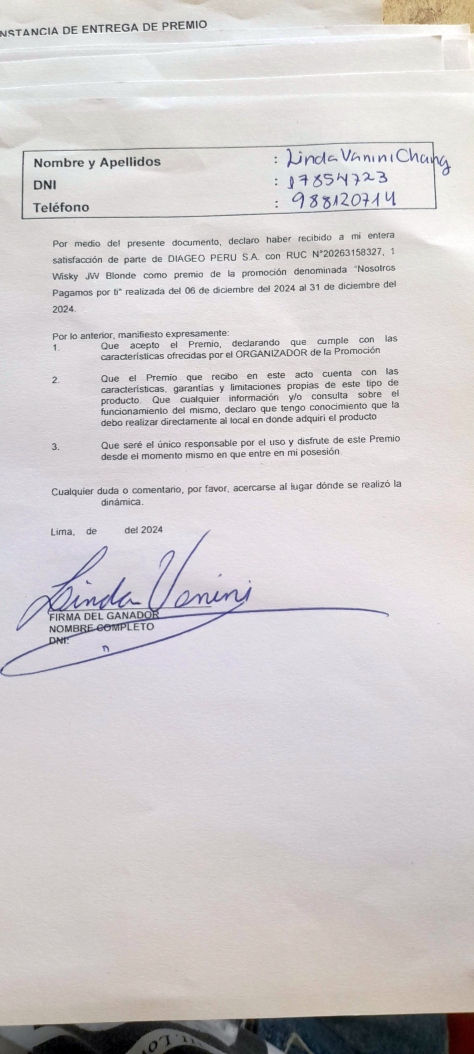 NSTANCIA DE ENTREGA DE PREMIO
Nombre y Apellidos : Linda Vanini Chang
DNI : 17854723
Teléfono : 988120714
Por medio del presente documento, declaro haber recibido a mi entera
satisfacción de parte de DIAGEO PERU S.A. con RUC N°20263158327, 1
Wisky JW Blonde como premio de la promoción denominada "Nosotros
Pagamos por ti" realizada del 06 de diciembre del 2024 al 31 de diciembre del
2024.
Por lo anterior, manifiesto expresamente:
1. Que acepto el Premio, declarando que cumple con las
características ofrecidas por el ORGANIZADOR de la Promoción
2. Que el Premio que recibo en este acto cuenta con las
características, garantías y limitaciones propias de este tipo de
producto. Que cualquier información y/o consulta sobre el
funcionamiento del mismo, declaro que tengo conocimiento que la
debo realizar directamente al local en donde adquirí el producto
3. Que seré el único responsable por el uso y disfrute de este Premio
desde el momento mismo en que entre en mi posesión.
Cualquier duda o comentario, por favor, acercarse al lugar dónde se realizó la
dinámica.
Lima, de del 2024
Linda Vanini
FIRMA DEL GANADOR
NOMBRE COMPLETO
DNI: